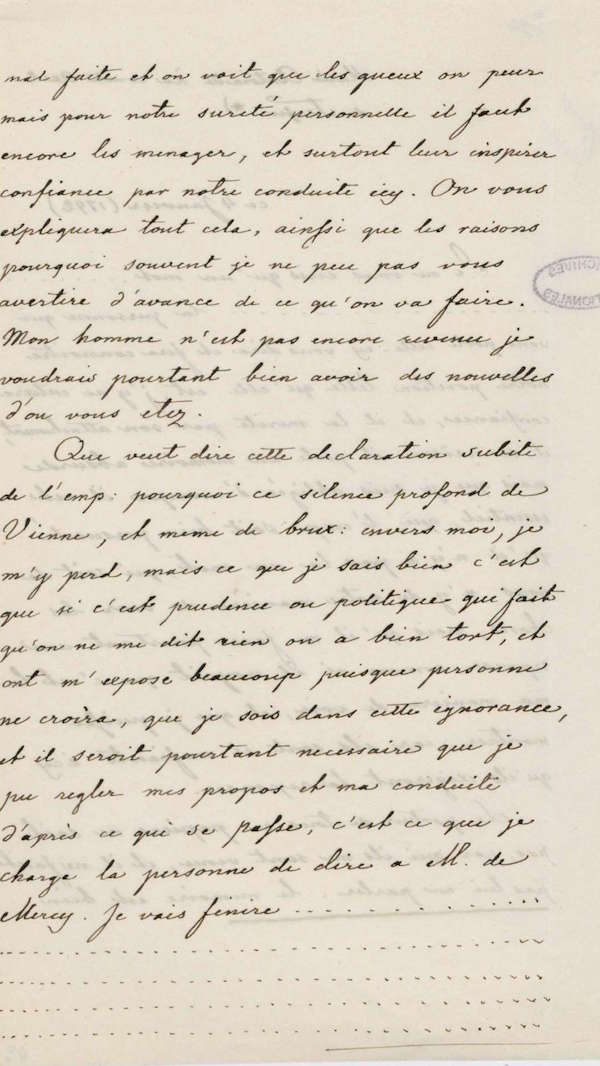 mal faite et on voit que les gueux on peur
mais pour notre sureté personnelle il faut
encore les menager, et surtout leur inspirer
confiance par notre conduite icy. On vous
expliquera tout cela, ainsi que les raisons
pourquoi souvent je ne peu pas vous
avertire d'avance de ce qu'on va faire.
Mon homme n'est pas encore revenu je
voudrais pourtant bien avoir des nouvelles
d'ou vous etez.
Que veut dire cette declaration subite
de l'emp: pourquoi ce silence profond de
Vienne, et meme de brux: envers moi, je
m'y perd, mais ce que je sais bien c'est
que si c'est prudence ou politique qui fait
qu'on ne me dit rien on a bien tort, et
ont m'expose beaucoup puisque personne
ne croira, que je sois dans cette ignorance,
et il seroit pourtant necessaire que je
pu regler mes propos et ma conduite
d'après ce qui se passe, c'est ce que je
charge la personne de dire a M. de
Mercy. Je vais finire . . . . . . . . . . . .